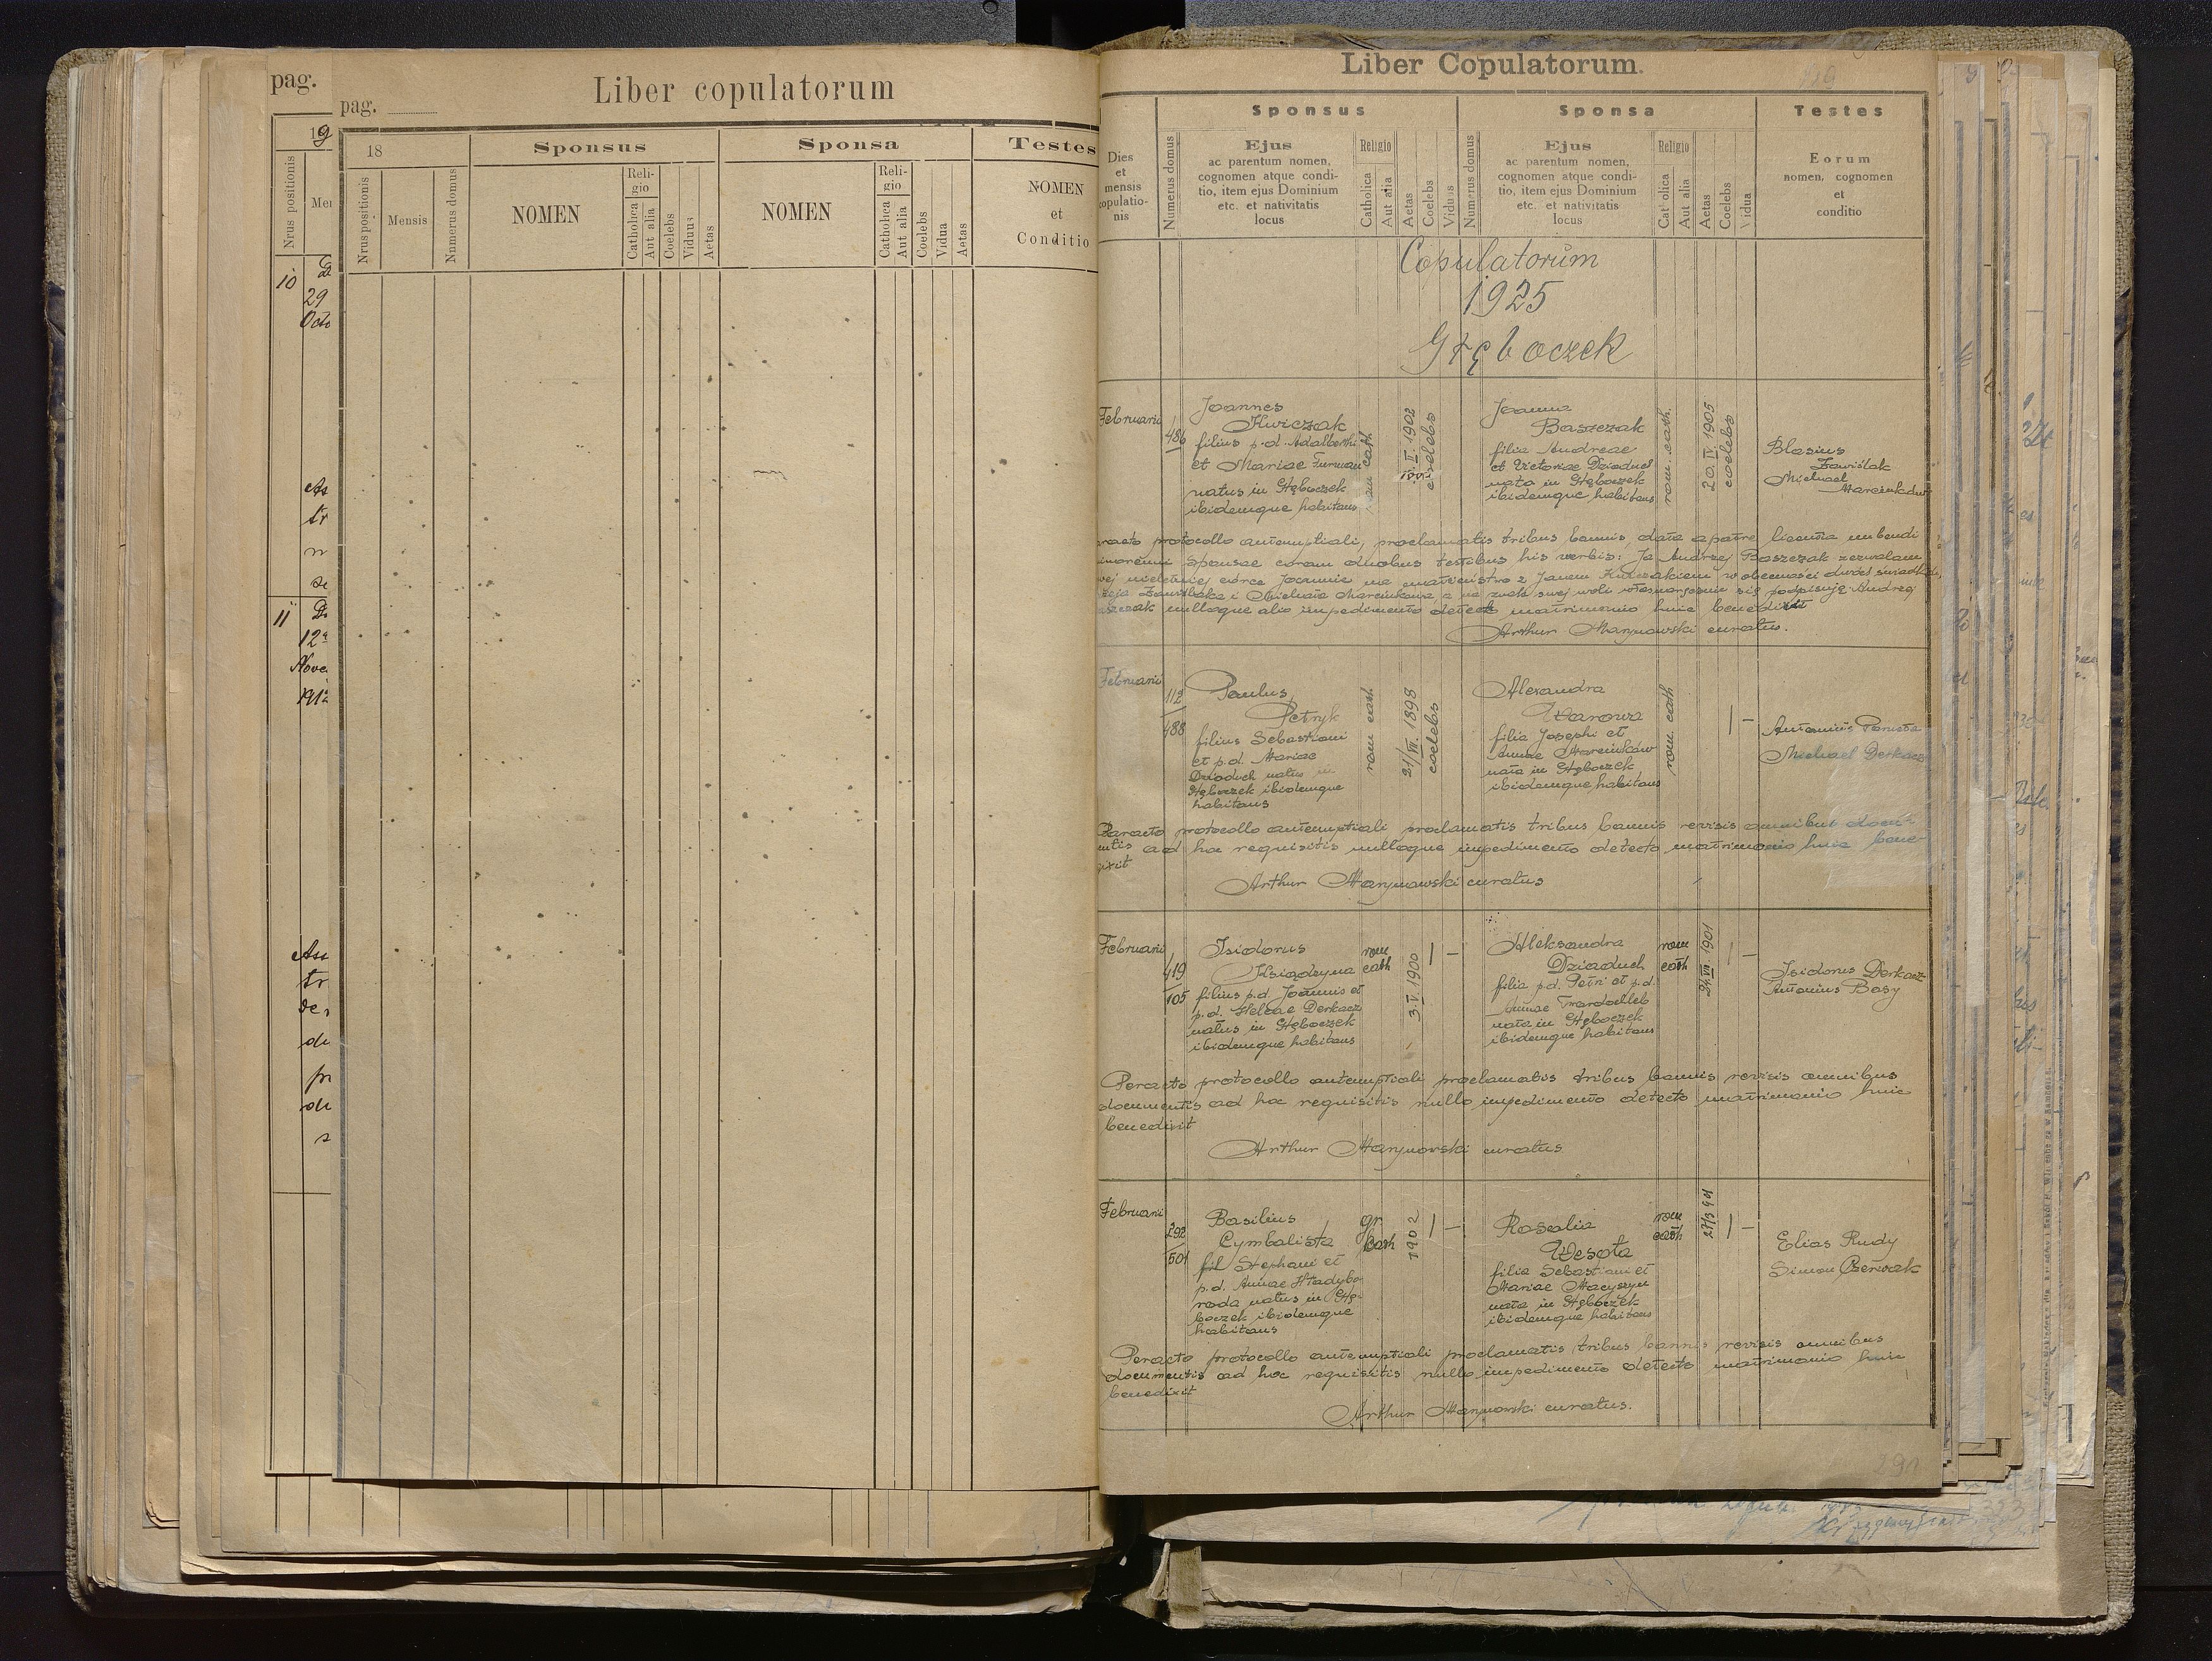 pag.
19
Nrus positionis
10
29
11
12
Nove
1912
pag.
Liber copulatorum
18
Sponsus
Sponsa
Testes
Nrus positionis
Mensis
Numerus domus
NOMEN
Reli-
gio
Catholica
Aut alia
Coelebs
Viduus
Aetas
NOMEN
Reli-
gio
Catholica
Aut alia
Coelebs
Vidua
Aetas
NOMEN
et
Conditio
Liber Copulatorum.
Sponsus
Sponsa
Testes
Dies
et
mensis
copulatio-
nis
Numerus domus
Ejus
ac parentum nomen,
cognomen atque condi-
tio, item ejus Dominium
etc. et nativitatis
locus
Religio
Catholica
Aut alia
Aetas
Coelebs
Viduus
Numerus domus
Ejus
ac parentum nomen,
cognomen atque condi-
tio, item ejus Dominium
etc. et nativitatis
locus
Religio
Cat olica
Aut alia
Aetas
Coelebs
Vidua
Eorum
nomen, cognomen
et
conditio
Copulatorum
1925
Głęboczek
Februarii
486
Joannes
Kwiczak
filius p.d. Adalberti
et Mariae Furman
natus in Głęboczek
ibidemque habitans
rom cath
1902
coelebs
Joanna
Baszczak
filia Andreae
et Victoriae Dziaduch
nata in Głęboczek
ibidemque habitans
rom. cath.
20. IV. 1905
coelebs
Blasius
Zawiślak
Michael
Marcinków
protocollo antenuptiali, proclamatis tribus bannis, data a patre licentia nubendi
minorenni sponsae coram duobus testibus his verbis: Ja Andrzej Baszczak zezwalam
mej nieletniej córce Joannie na małżeństwo z Janem Kwiczakiem w obecności dwóch świadków,
Zawiślaka i Michała Marcinkowa a na znak swej woli własnoręcznie się podpisuję Andrzej
nulloque alio impedimento detecto matrimonio huic benedixit
Arthur Marynowski curatus.
Februarii
112
488
Paulus
Petryk
filius Sebastiani
et p.d. Mariae
Dziaduch natus in
Głęboczek ibidemque
habitans
rom cath
21/VI. 1898
coelebs
Alexandra
filia Josephi et
Annae Marcinków
nata in Głęboczek
ibidemque habitans
rom. cath
| –
Antonius
Michael Derkacz
Peracto protocollo antenuptiali proclamatis tribus bannis revisis omnibus docu-
mentis ad hoc requisitis nulloque impedimento detecto matrimonio huic bene-
dixit
Arthur Marynowski curatus
Februarii
419
105
Isidorus
filius p.d. Joannis et
p.d. Helenae Derkacz
natus in Głęboczek
ibidemque habitans
rom
cath
3.V.1900
| –
Aleksandra
Dziaduch
filia p.d. Petri et p.d.
Annae Twardochleb
nata in Głęboczek
ibidemque habitans
rom
cath
24.VI.1901
| –
Isidorus Derkacz
Antonius Basy
Peracto protocollo antenuptiali proclamatis tribus bannis revisis omnibus
documentis ad hoc requisitis nullo impedimento detecto matrimonio huic
benedixit
Arthur Marynowski curatus
Februarii
292
501
Basilius
Cymbalista
fil Stephani et
p.d. Annae Hładybo
roda natus in Głę-
boczek ibidemque
habitans
gr.
cath
1902
| –
Rosalia
Wesoła
filia Sebastiani et
Mariae Macyszyn
nata in Głęboczek
ibidemque habitans
rom
cath
27/3 901
| –
Elias Rudy
Simon Czerwak
Peracto protocollo antenuptiali proclamatis tribus bannis revisis omnibus
documentis ad hoc requisitis nullo impedimento detecto matrimonio huic
benedixit
Arthur Marynowski curatus.